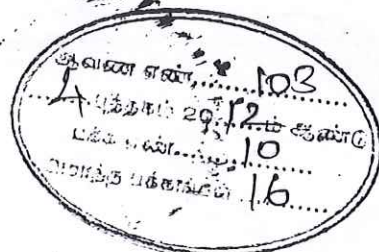 ஆவண எண்.........103
4 புத்தகம் 2012ம் ஆண்டு
பக்க எண்........10
பக்கங்கள் 16